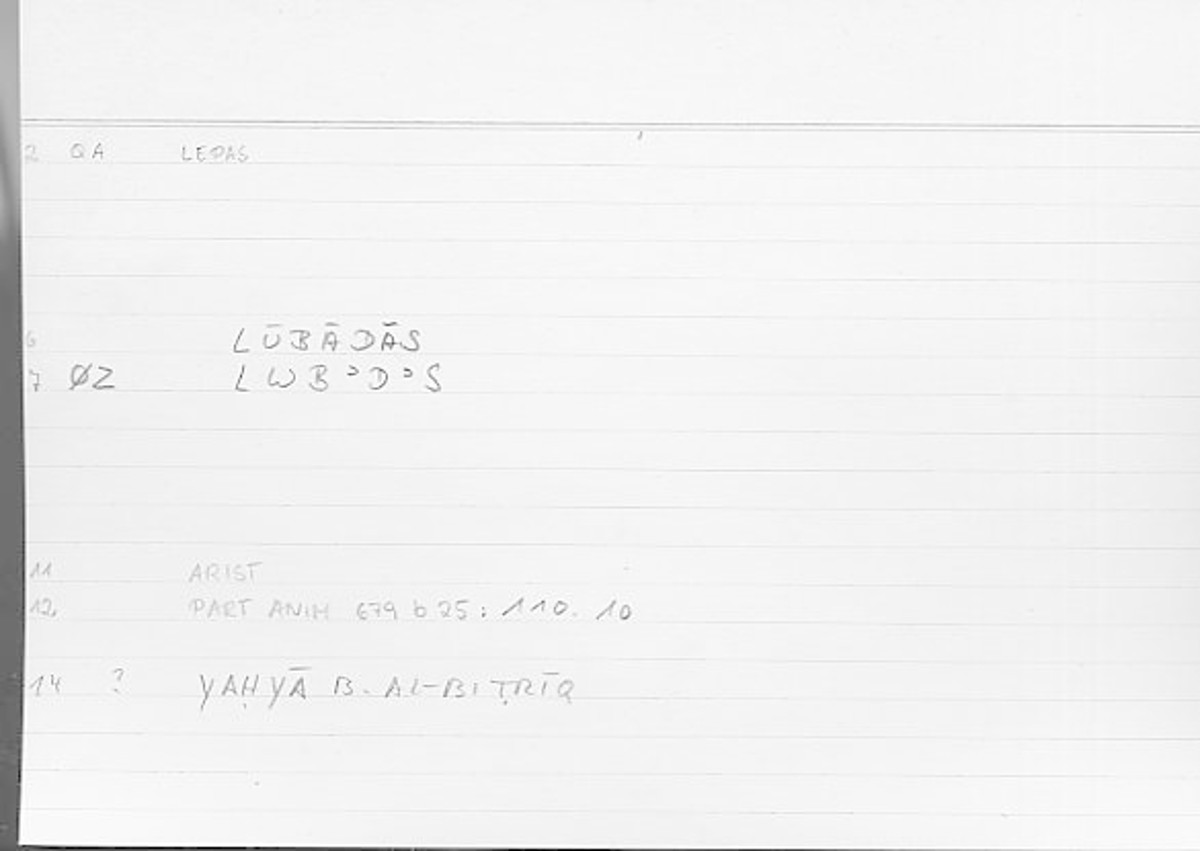 2 QA LEPAS
6 LŪBĀDĀS
7 ØZ LWBʾDʾS
11 ARIST
12 PART ANIM 679 b 25 : 110. 10
14 ? YAḤYĀ B. AL-BIṬRĪQ